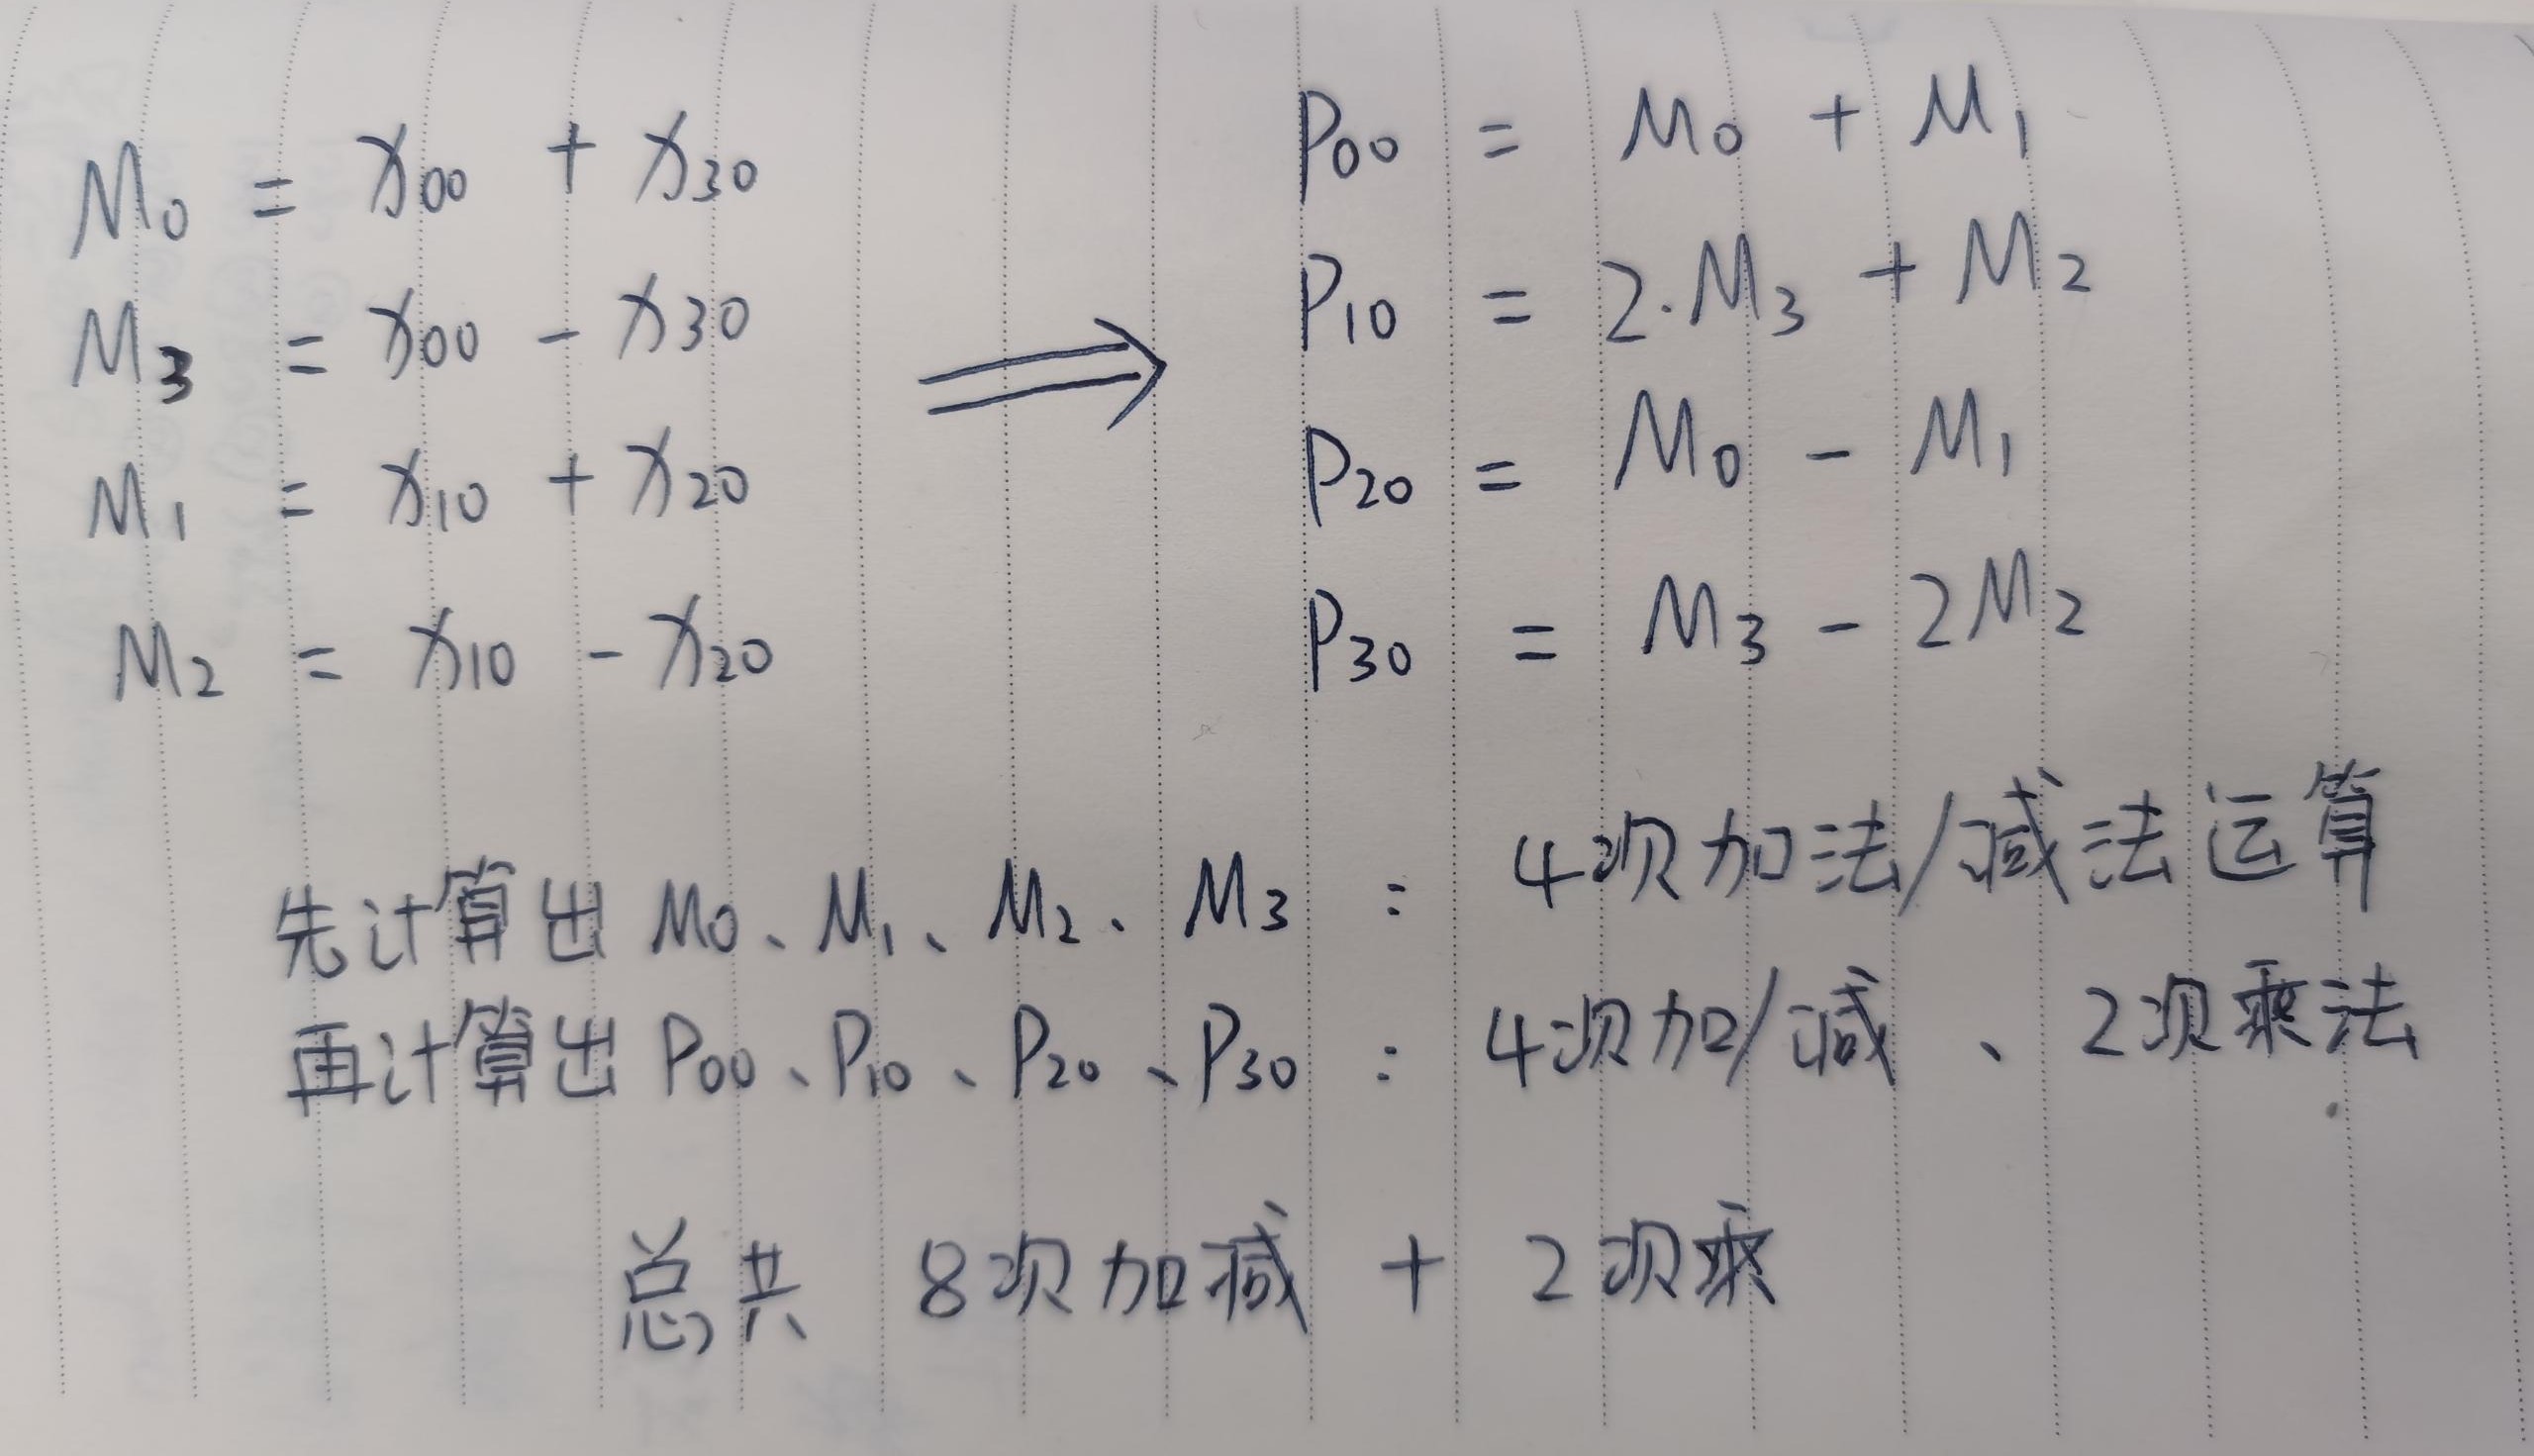 M₀ = x₀₀ + x₃₀
M₃ = x₀₀ - x₃₀
M₁ = x₁₀ + x₂₀
M₂ = x₁₀ - x₂₀
⇒
P₀₀ = M₀ + M₁
P₁₀ = 2·M₃ + M₂
P₂₀ = M₀ - M₁
P₃₀ = M₃ - 2M₂
先计算出 M₀、M₁、M₂、M₃ : 4次加法/减法运算
再计算出 P₀₀、P₁₀、P₂₀、P₃₀ : 4次加/减 、 2次乘法
总共 8次加减 + 2次乘